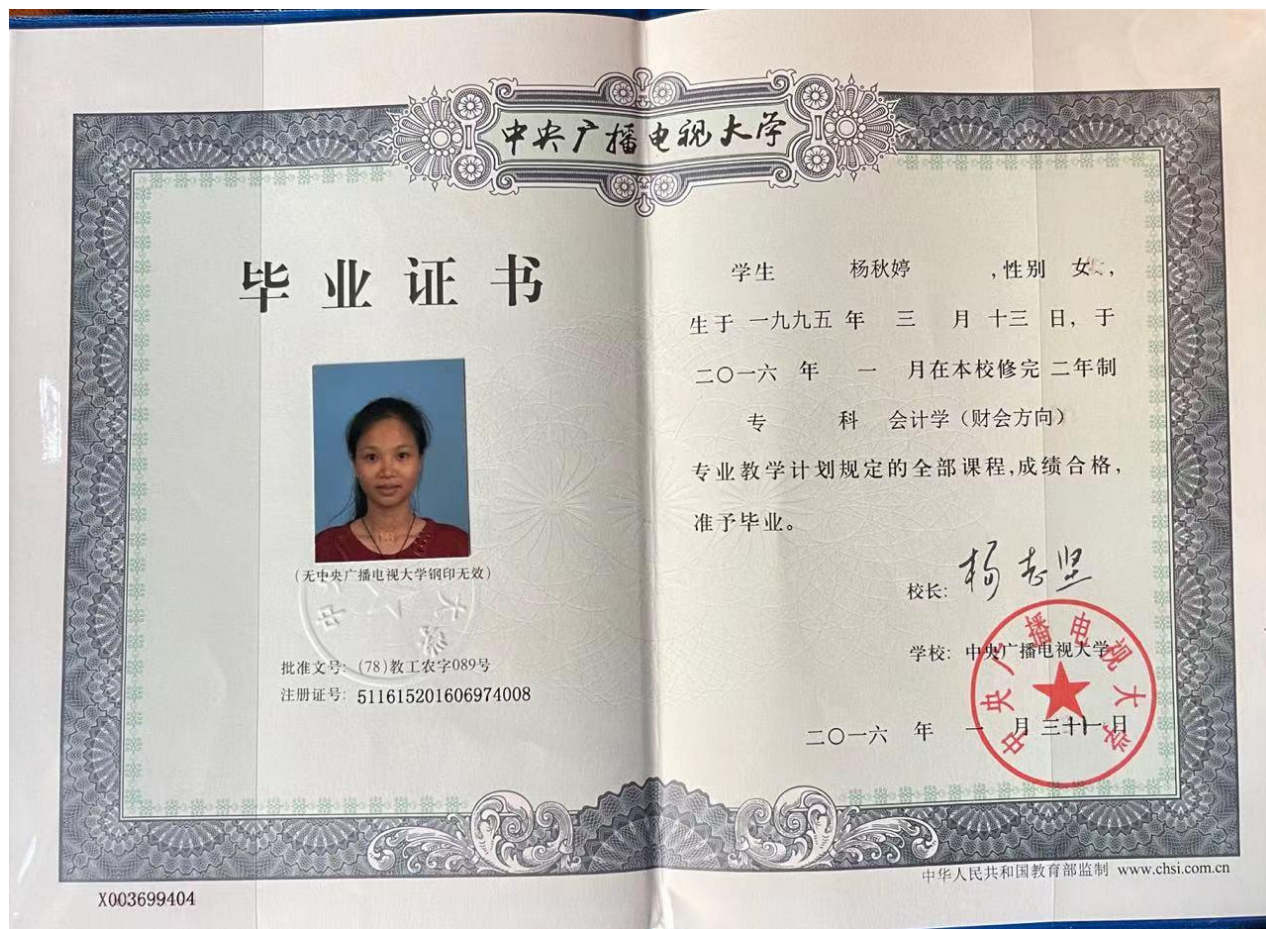 中央广播电视大学
毕业证书
(无中央广播电视大学钢印无效)
批准文号:(78)教工农字089号
注册证号:511615201606974008
X003699404
学生 杨秋婷 ,性别 女,
生于 一九九五 年 三 月 十三 日,于
二〇一六 年 一 月在本校修完 二年制
专 科 会计学(财会方向)
专业教学计划规定的全部课程,成绩合格,
准予毕业。
校长: 杨志坚
学校: 中央广播电视大学
二〇一六 年 一 月 三十一 日
中央广播电视大学
中华人民共和国教育部监制 www.chsi.com.cn